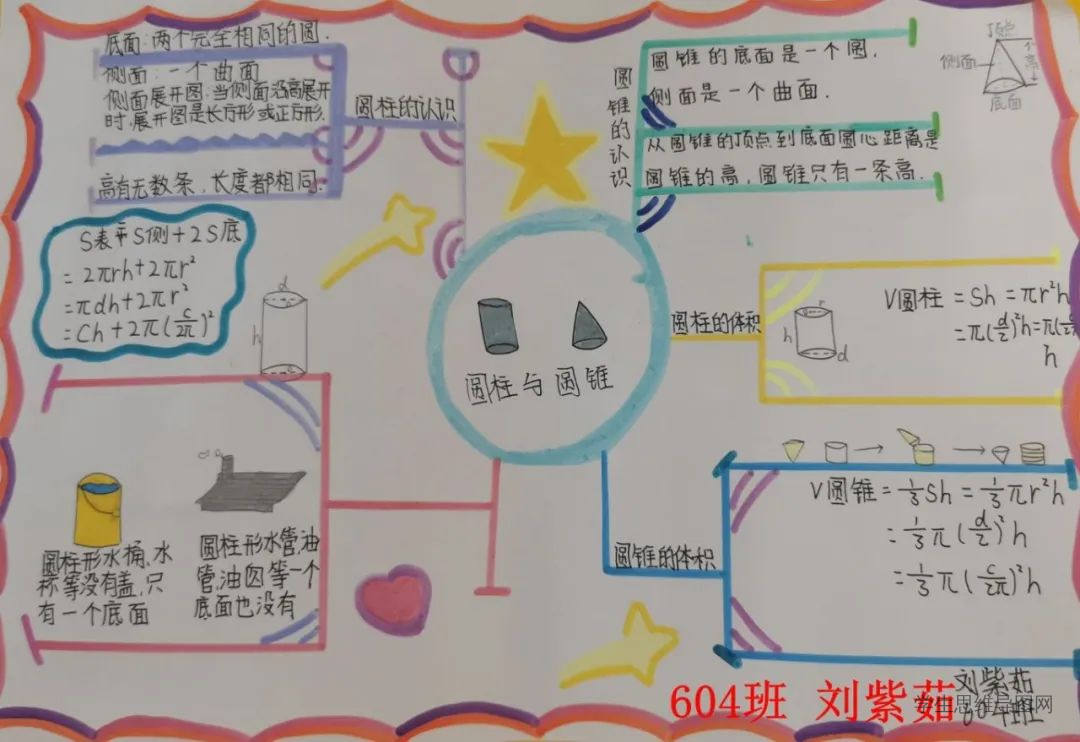 底面:两个完全相同的圆.
侧面:一个曲面
侧面展开图:当侧面沿高展开
时,展开图是长方形或正方形.
高有无数条,长度都相同.
圆柱的认识
圆锥的认识
圆锥的底面是一个圆.
侧面是一个曲面.
从圆锥的顶点到底面圆心距离是
圆锥的高,圆锥只有一条高.
顶点
侧面
高
底面
S表=S侧+2S底
=2πrh+2πr²
=πdh+2πr²
=Ch+2π(c/2π)²
d
h
圆柱与圆锥
圆柱的体积
r
h
d
V圆柱=Sh=πr²h
=π(d/2)²h=π(
h
圆柱形水桶、水
等没有盖,只
有一个底面
圆柱形水管,油
管,油囱等一个
底面也没有
圆锥的体积
V圆锥=1/3Sh=1/3πr²h
=1/3π(d/2)²h
=1/3π(c/2π)²h
604班 刘紫茹
刘紫茹
604班
学生思维导图网